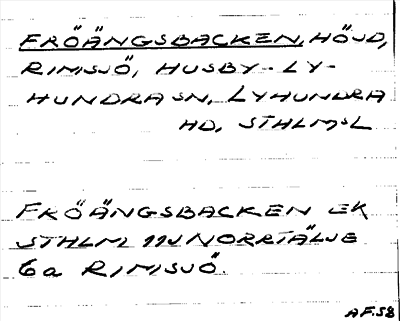 FRÖÄNGSBACKEN, HÖJD,
RIMSJÖ, HUSBY-LY-
HUNDRA SN, LYHUNDRA
HD, STHLMSL
FRÖÄNGSBACKEN EK
STHLM 11J NORRTÄLJE
6a RIMSJÖ.
AF.58